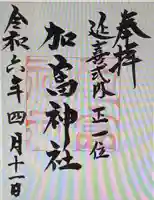 奉拝
延喜式内 正一位
加高神社
令和六年四月十一日